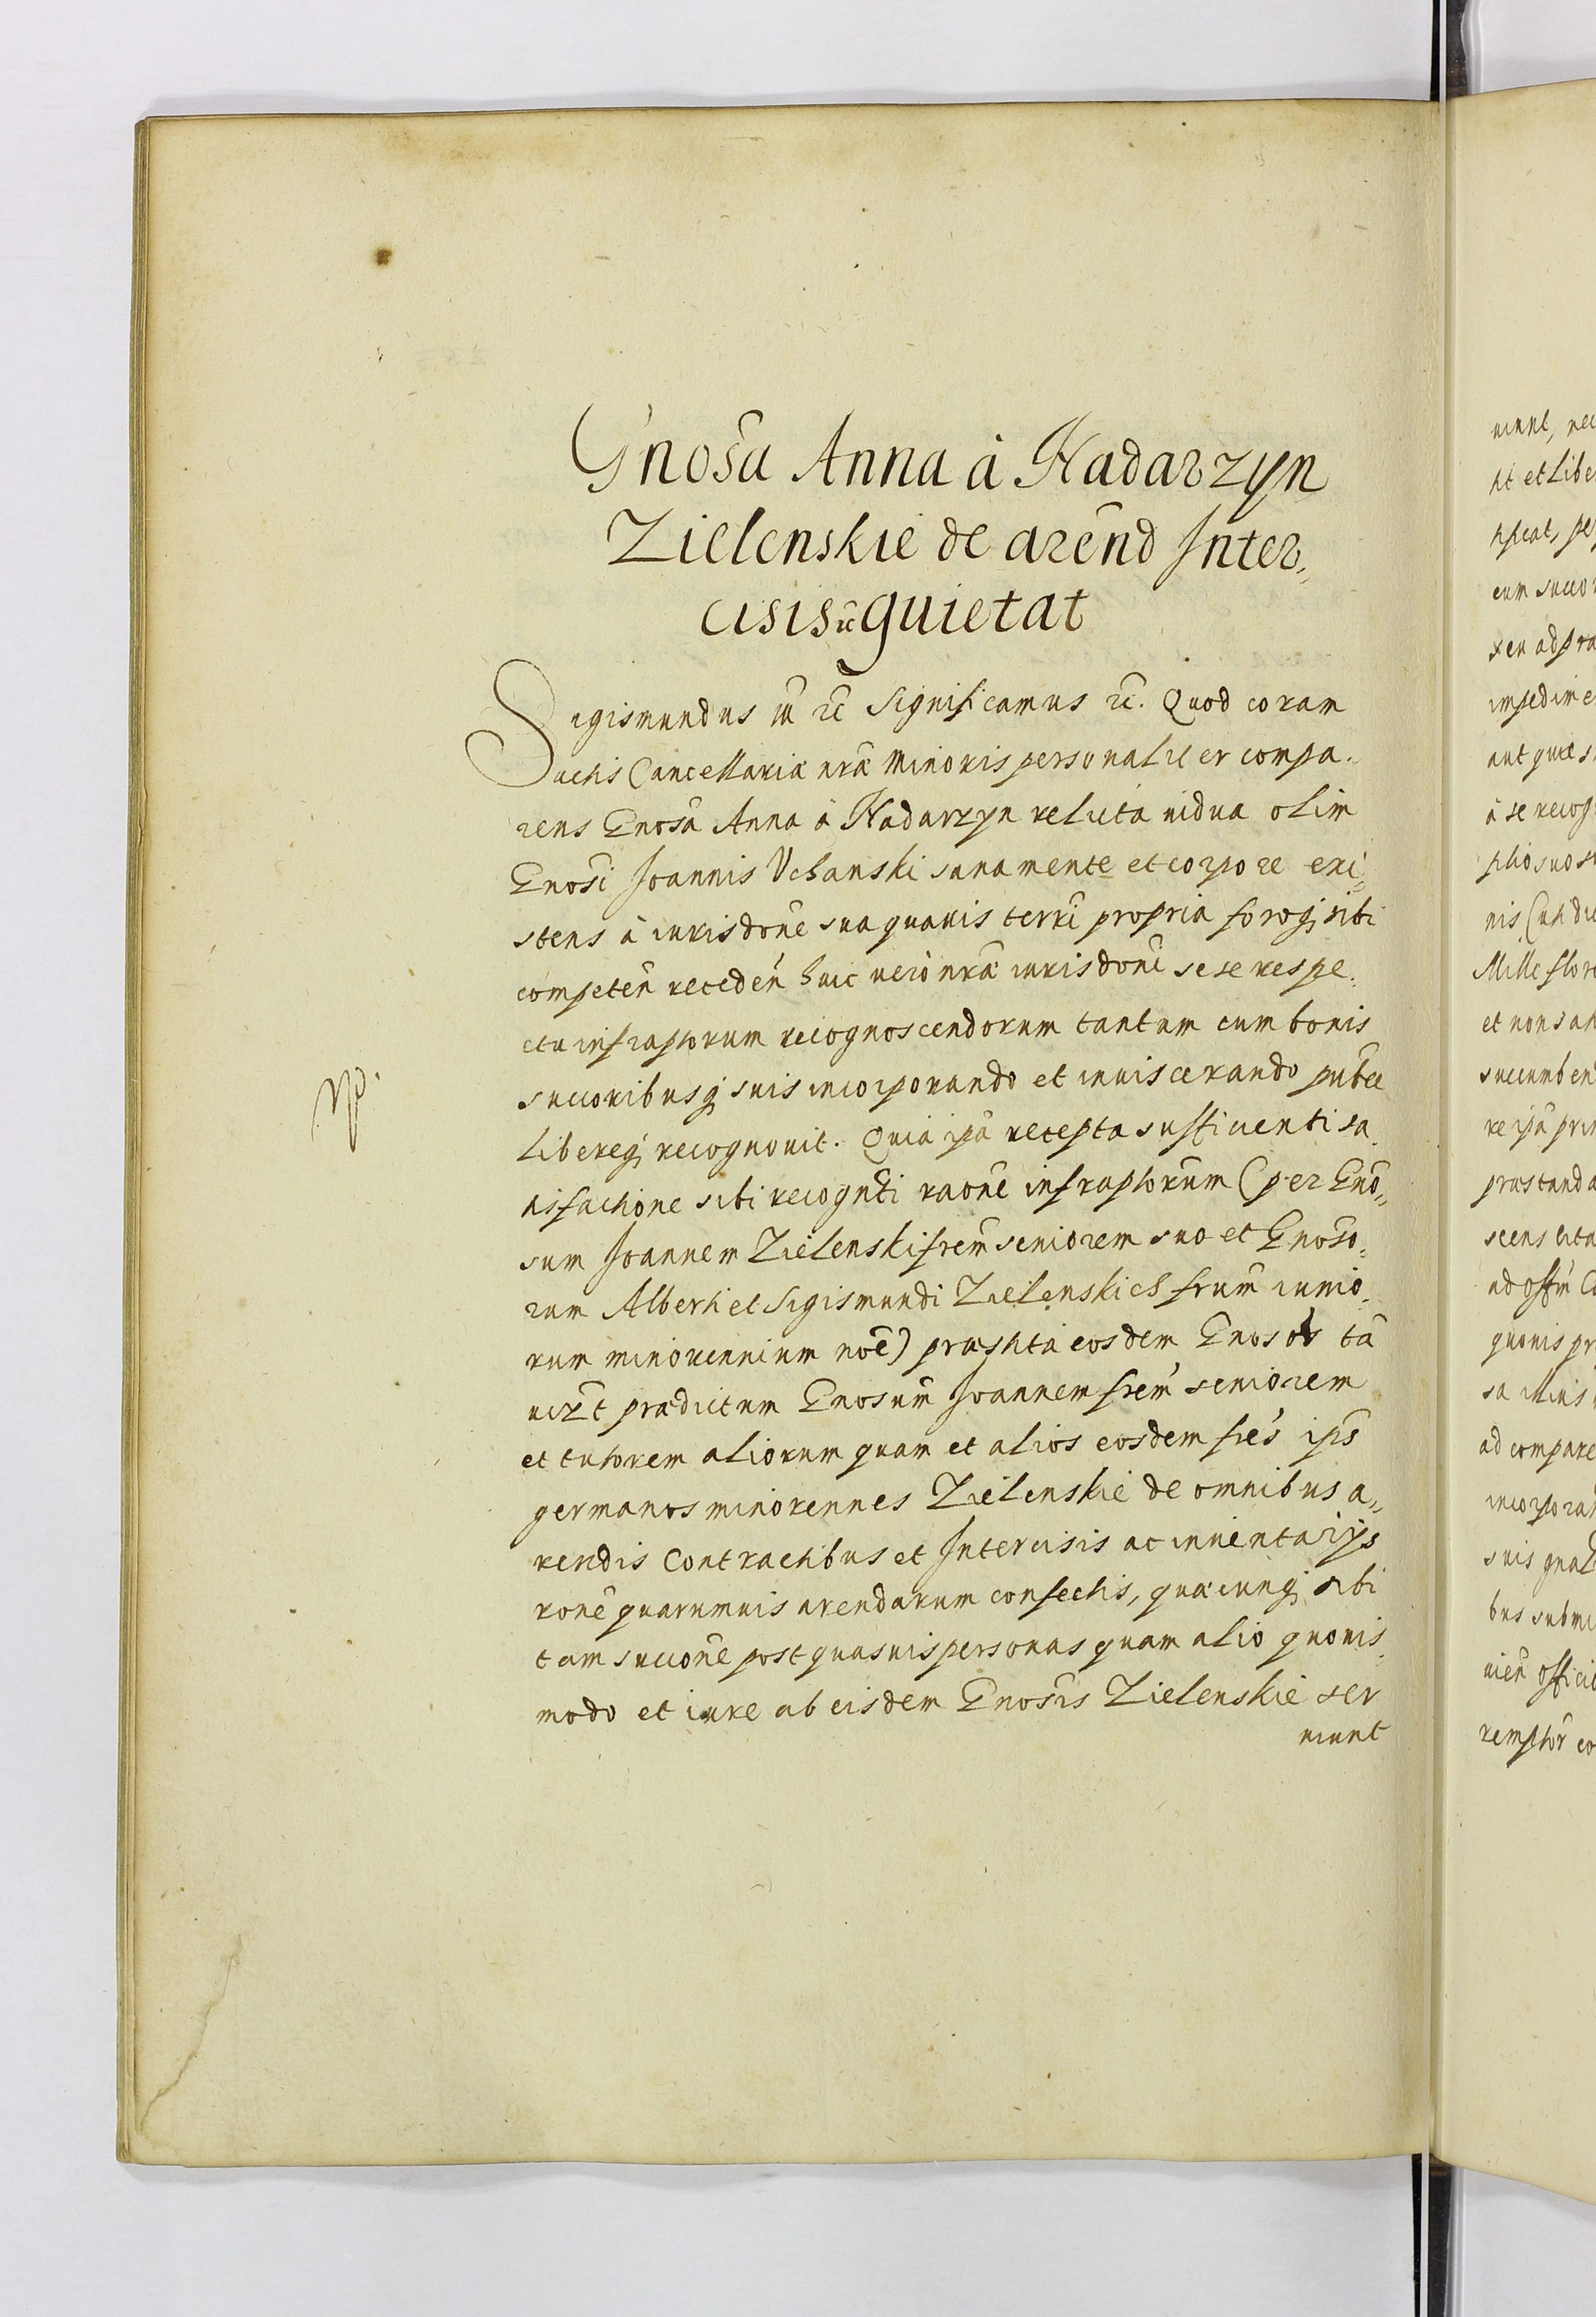 Gnosa Anna à Nadarzyn
Zielenskie de arend Inter„
cisis &c quietat
Sigismundus III &c Significamus &c. Quod coram
actis Cancellariæ nræ Minoris personaliter compa.
rens Gnosa Anna à Nadarzyn relicta vidua olim
Gnosi Joannis Uchanski sana mente et corpore exi„
stens à iurisdone sua quavis terri propria foroq; sibi
competen receden huic vero nræ iurisdoni sese respe.
ctu infraptorum recognoscendorum tantum cum bonis
succoribusq; suis incorporando et inviscerando pubce
libereq; recognovit. Quia ipa recepta sufficienti sa.
tisfactione sibi recognti raone infraptorum (per Gno„
sum Joannem Zielenski frem seniorem suo et Gnoso„
rum Alberti et Sigismundi Zielenskich frum iunio„
rum minorennium noe) præstita eosdem Gnosos ta
vizt prædictum Gnosum Joannem frem seniorem
et tutorem aliorum quam et alios eosdem fres ips
germanos minorennes Zielenskie de omnibus a„
rendis Contractibus et Intercisis ac inventarijs
rone quarumvis arendarum confectis, quæcunq; sibi
tam succone post quasvis personas quam alio quovis„
modo et iure ab eisdem Gnosis Zielenskie ser
viunt
viunt, rec
tit et Libe
eum succo
seu ad præ
impedime
aut quæ s
à se recog
Mille flor
succumben
re ipa pri
præstanda
quovis pr
sa illius
ad compare
incorporan
bus submi
vien officio